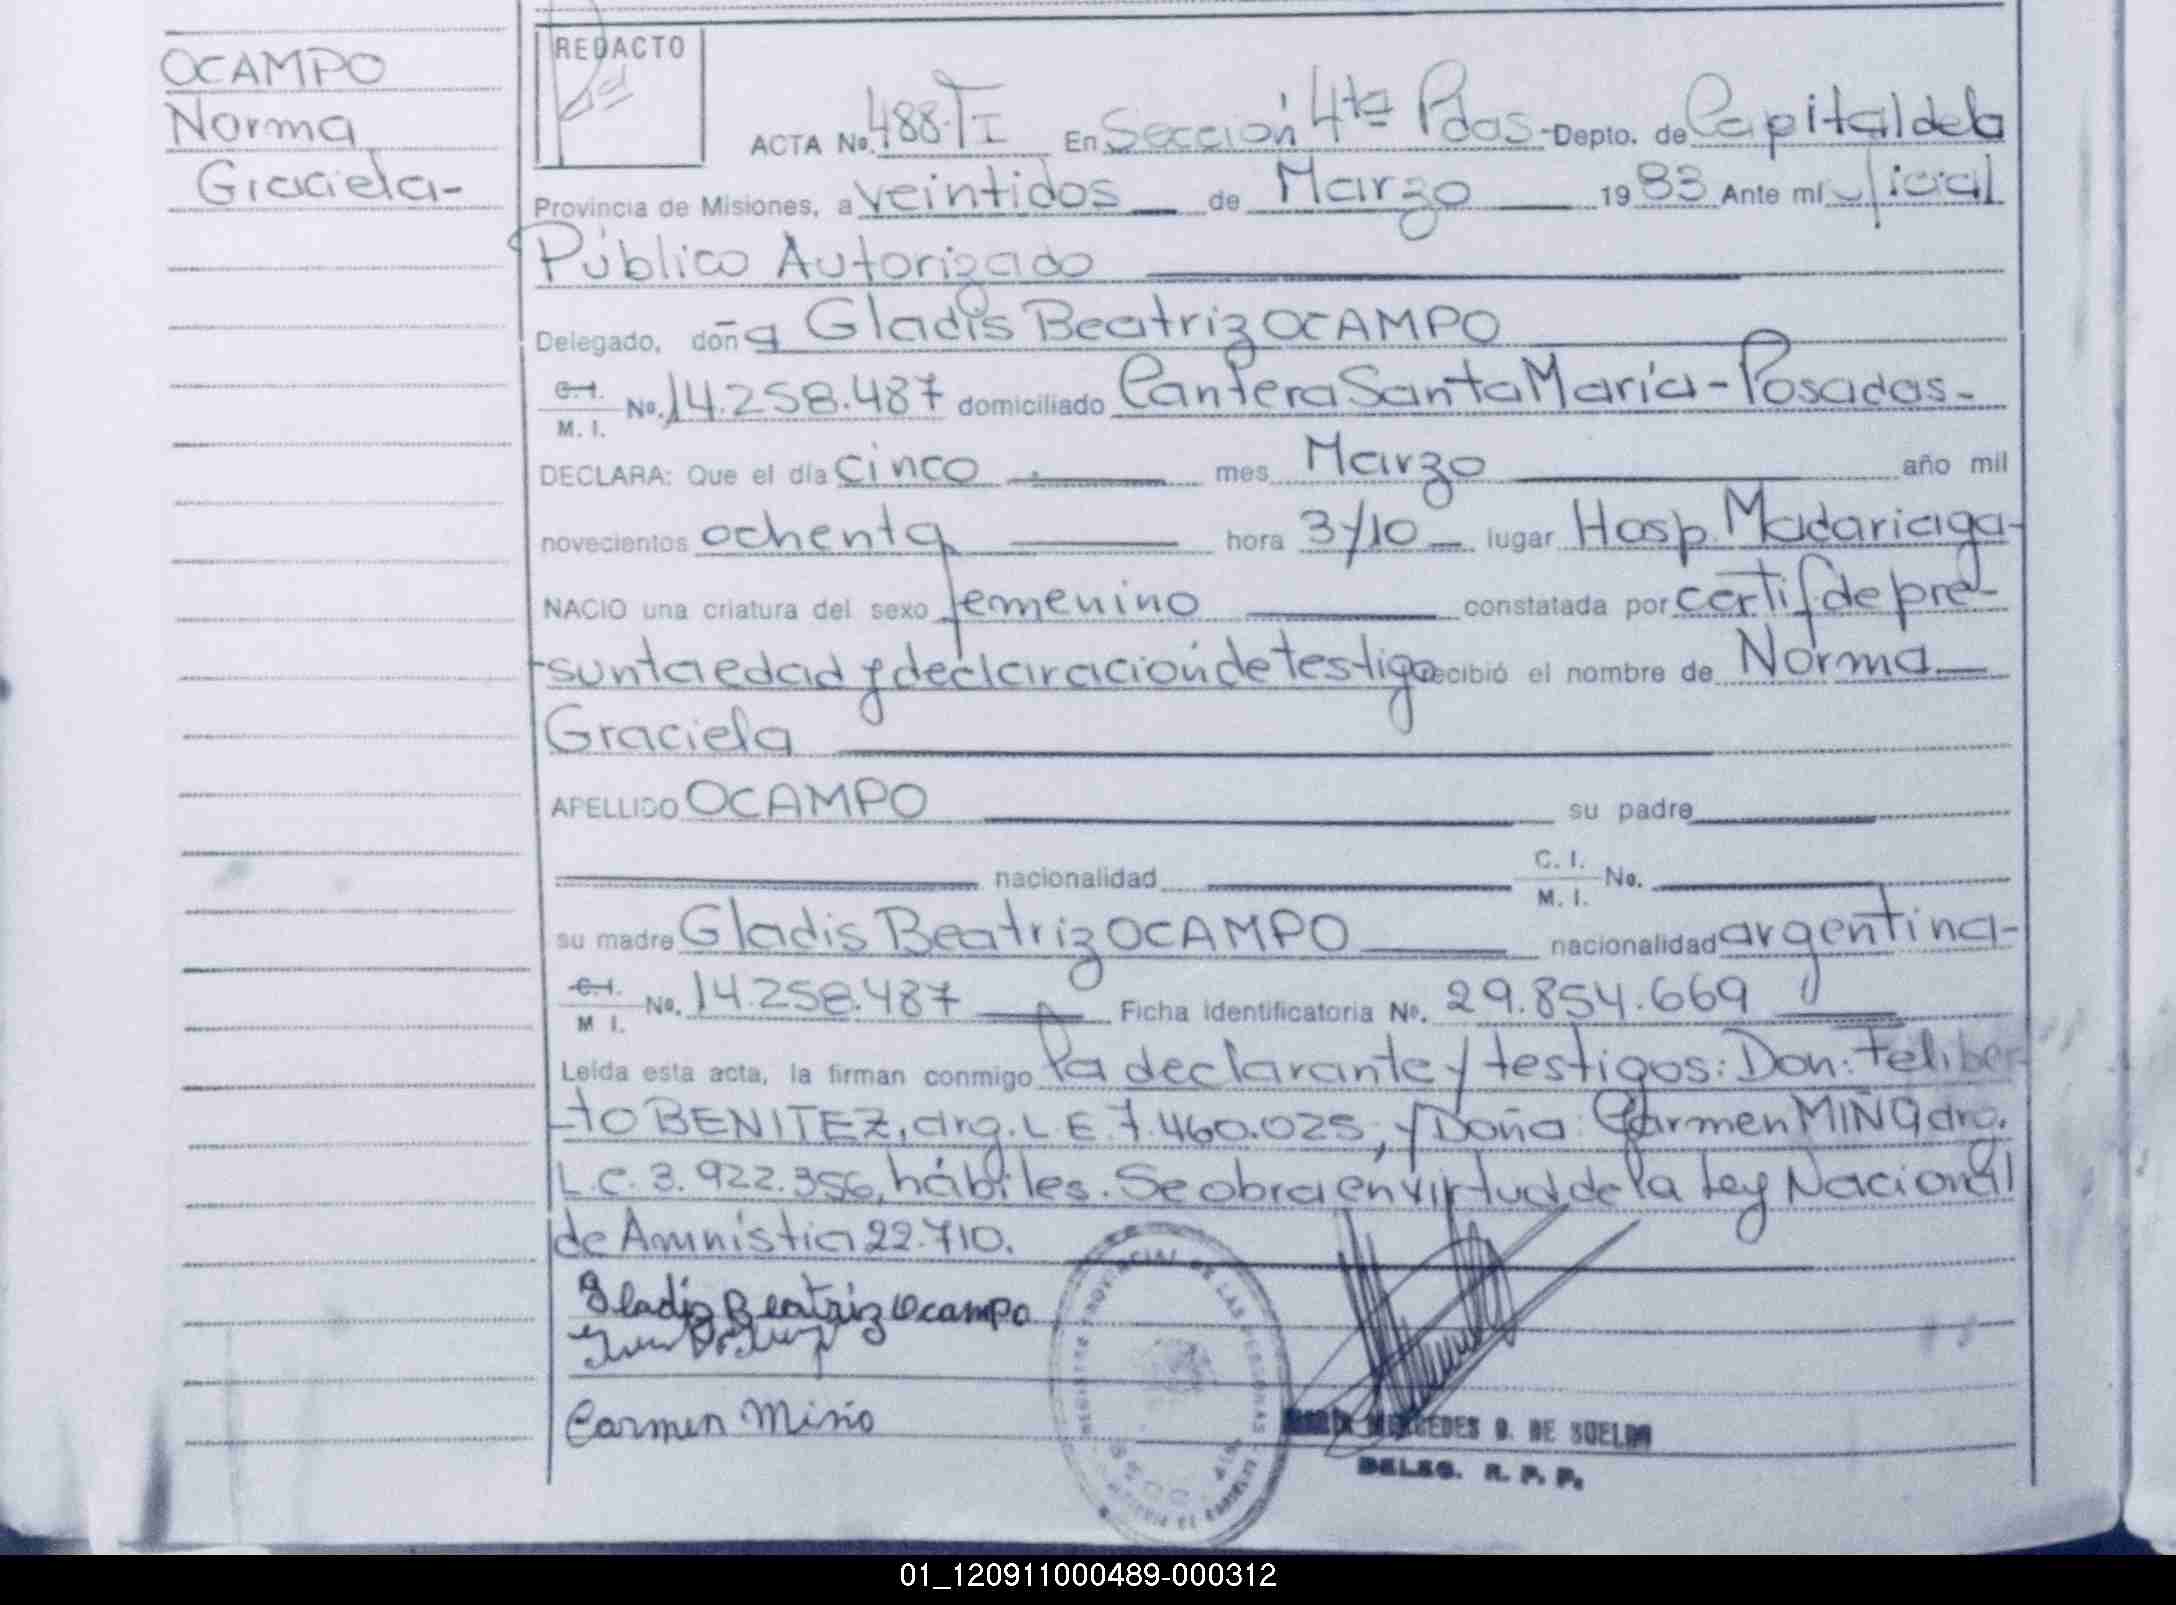 OCAMPO
Norma
Graciela-
REDACTO
ACTA No. 488-TI En Sección 4ta Pdas- Depto. de Capital de la
Provincia de Misiones, a veintidos de Marzo 1983 Ante mí oficial
Público Autorizado
Delegado, doña Gladis Beatriz OCAMPO
C.I.
M. I. No. 14.258.487 domiciliado Cantera Santa María - Posadas-
DECLARA: Que el día cinco mes Marzo año mil
novecientos ochenta hora 3/10 lugar Hosp. Madariaga-
NACIO una criatura del sexo femenino constatada por certif de pre-
sunta edad y declaración de testigo recibió el nombre de Norma
Graciela
APELLIDO OCAMPO su padre
nacionalidad C. I.
M. I. No.
su madre Gladis Beatriz OCAMPO nacionalidad argentina-
C.I.
M I. No. 14.258.487 Ficha Identificatoria No. 29.854.669
Leída esta acta, la firman conmigo la declarante y testigos: Don: Feliber-
to BENITEZ, arg. L E. 7.460.025, y Doña: Carmen MIÑO arg.
L.C. 3.922.356, hábiles. Se obra en virtud de la Ley Nacional
de Amnistia 22.710.
Gladiz Beatriz Ocampo
Carmen Miño
REGISTRO PROVINCIAL DE LAS PERSONAS
MERCEDES D. DE SUELDO
DELEG. R. P. P.
01_120911000489-000312